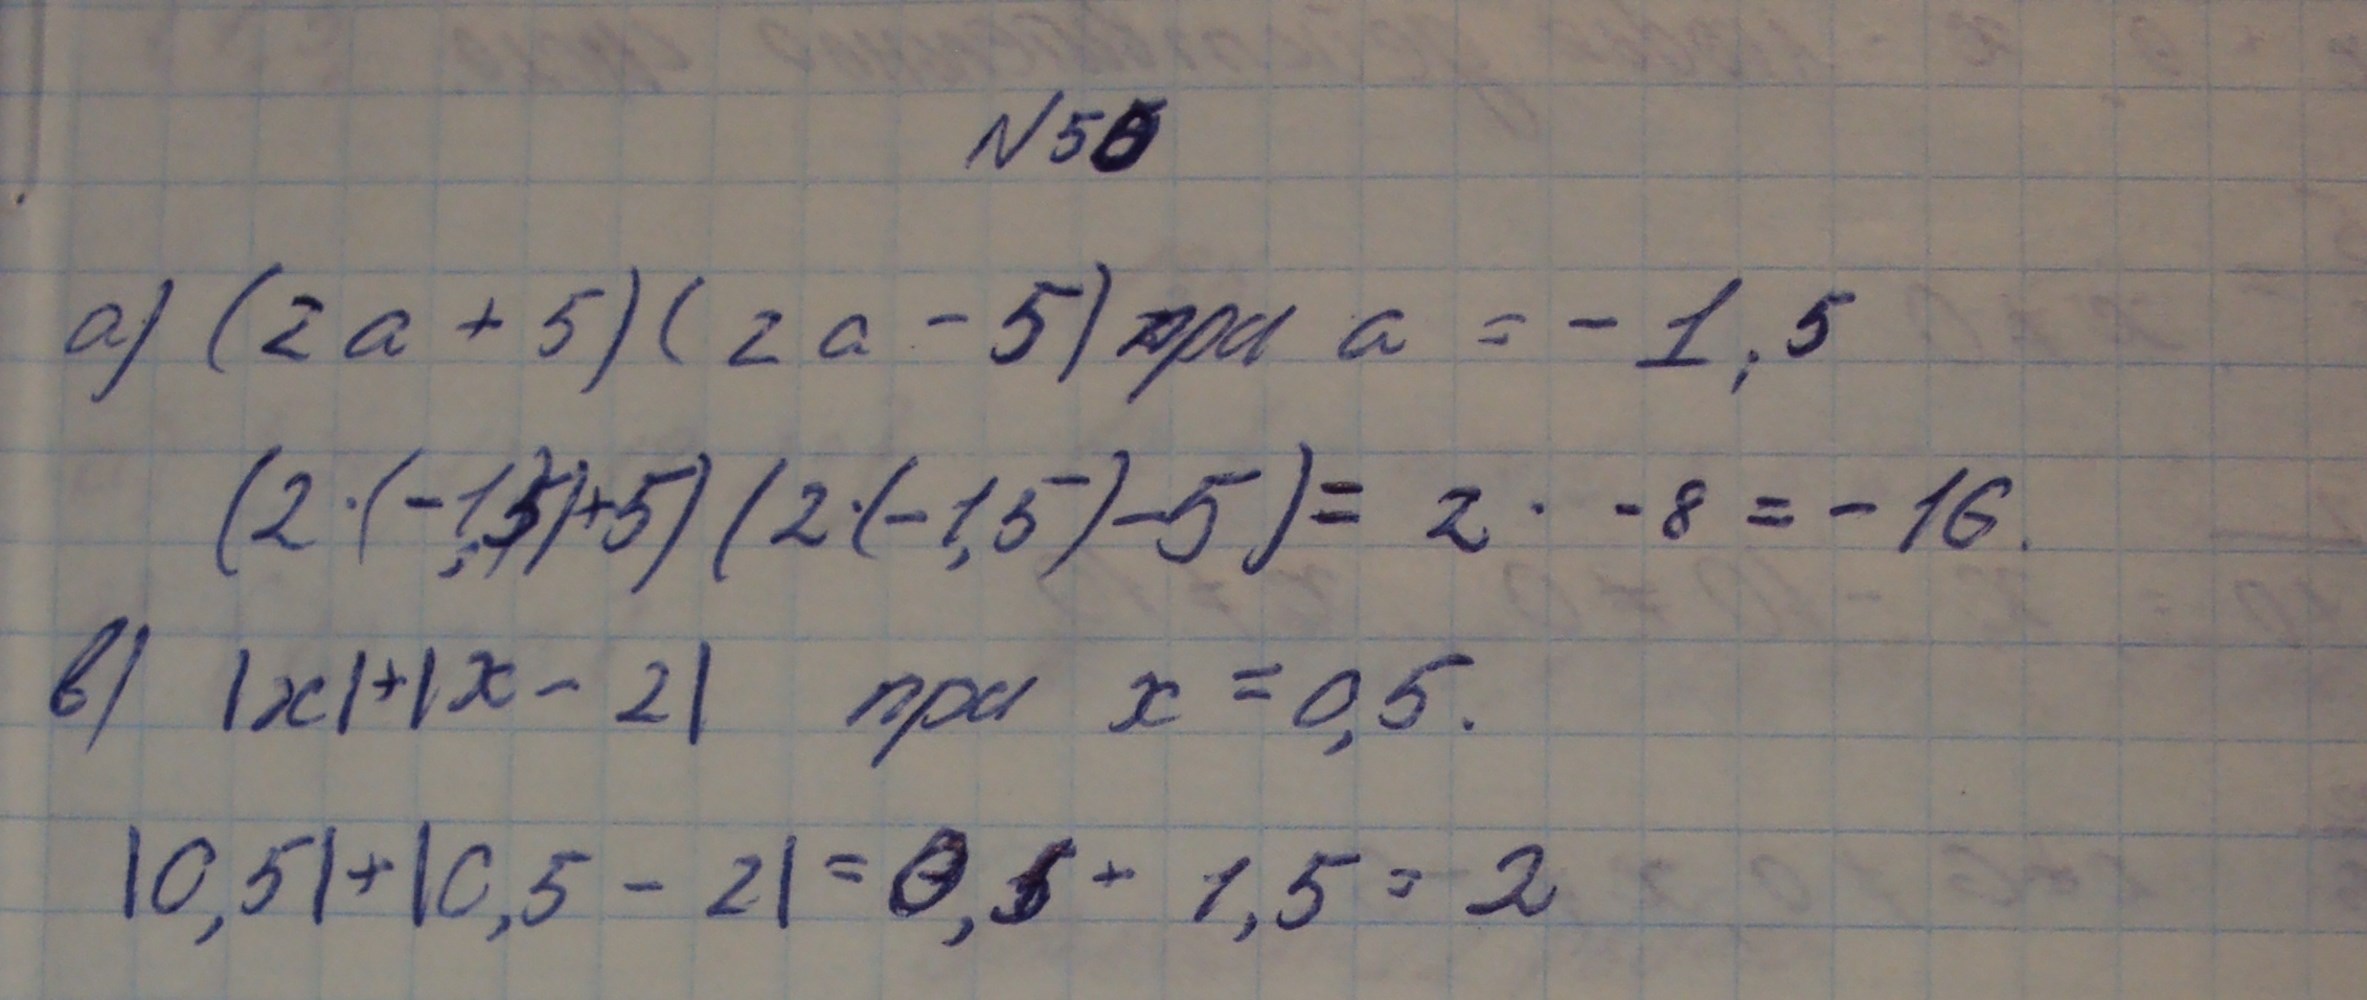 №56
а) (2a + 5)(2a - 5) при a = - 1,5
(2·(-1,5)+5)(2·(-1,5)-5) = 2 · -8 = - 16.
в) |x|+|x - 2| при x = 0,5.
|0,5|+|0,5 - 2| = 0,5 + 1,5 = 2